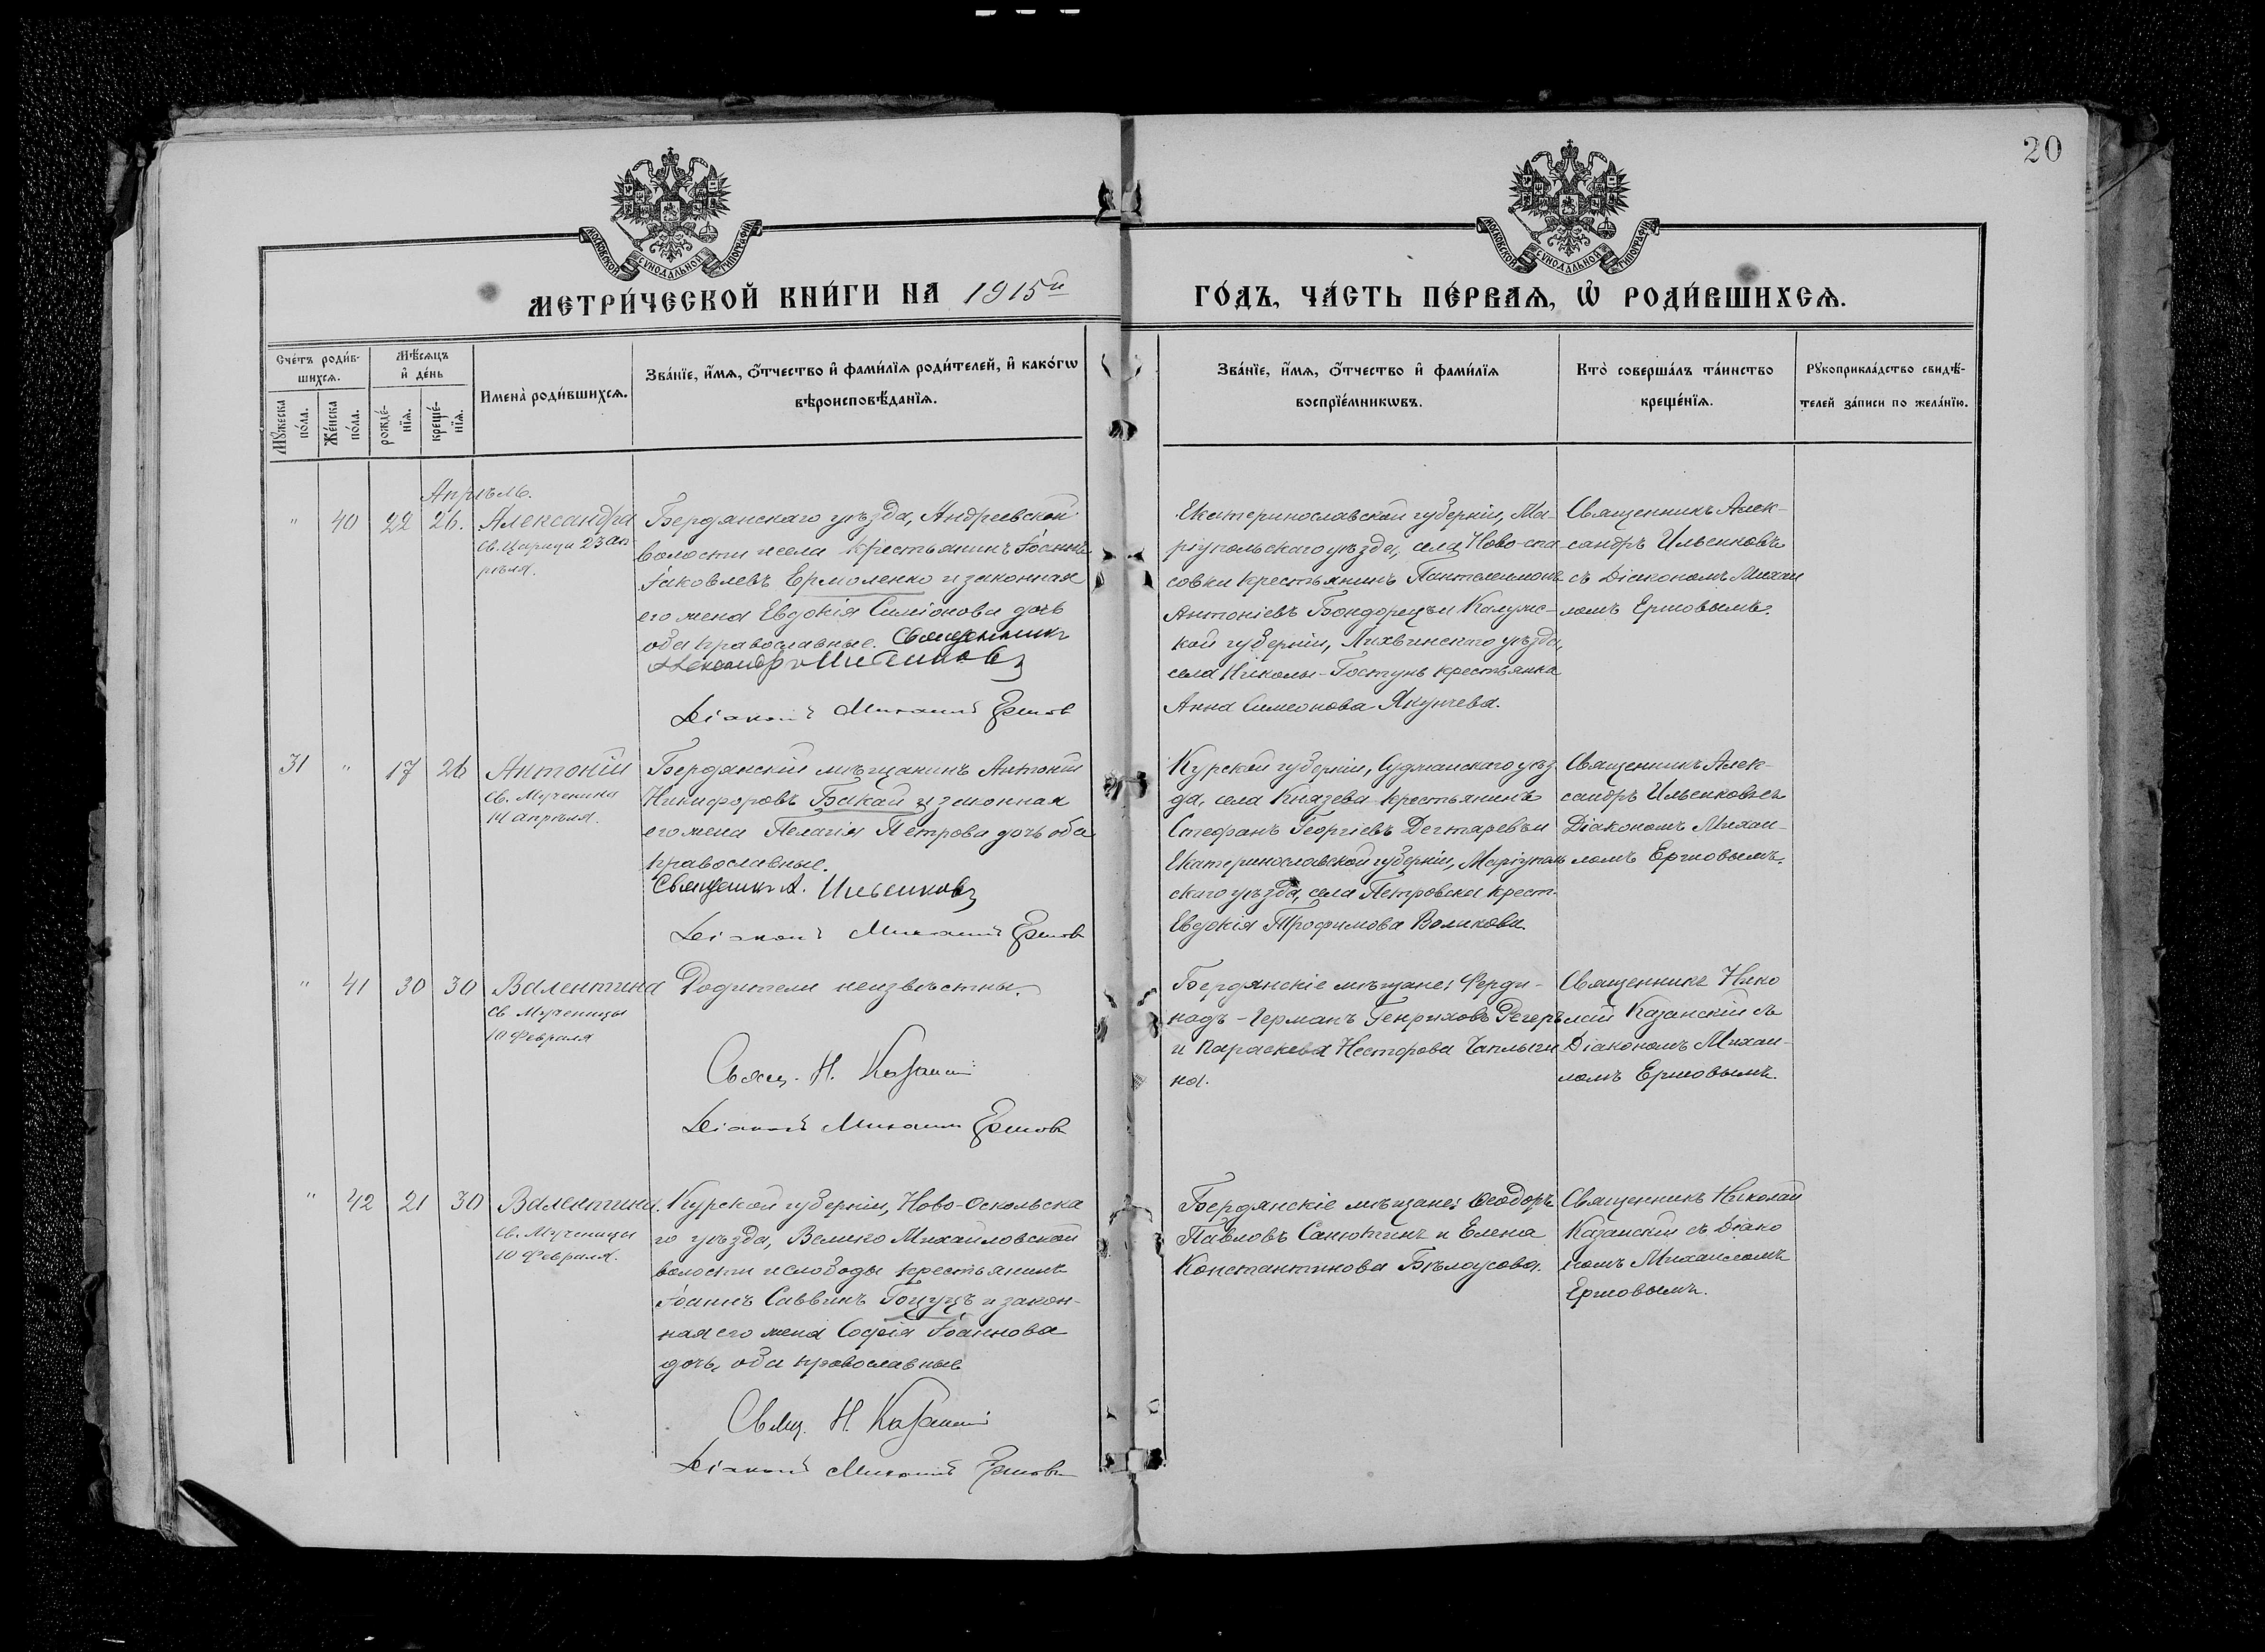 20
МОСКОВСКОЙ СѴНОДАЛЬНОЙ ТИПОГРАФІИ
МОСКОВСКОЙ СѴНОДАЛЬНОЙ ТИПОГРАФІИ
МЕТРИ́ЧЕСКОЙ КНИ́ГИ НА 1915й
ГО́ДЪ, ЧА́СТЬ ПЕ́РВАѦ, Ѡ҆ РОДИ́ВШИХСѦ.
Сче́тъ роди́в-
шихсѧ.
Мѣ́сѧцъ
и҆ де́нь
Мꙋ́жеска
по́ла.
Же́нска
по́ла.
рожде́-
нїѧ.
креще́-
нїѧ.
Имена̀ роди́вшихсѧ.
Зва́нїе, и҆́мѧ, ѻ҆́тчество и҆ фами́лїѧ роди́телей, и҆ како́гѡ
вѣроисповѣ́данїѧ.
Зва́нїе, и҆́мѧ, ѻ҆́тчество и҆ фами́лїѧ
воспрїе́мникѡвъ.
Кто̀ соверша́лъ та́инство
креще́нїѧ.
Рꙋкоприкла́дство свидѣ́-
телей за́писи по жела́нїю.
Апрѣль.
" 40 22 26. Александра
Св. Царицы 23 Ап-
рѣля.
Бердянскаго уѣзда, Андреевской
волости и села крестьянинъ Іоаннъ
Іаковлевъ Ермоленко и законная
его жена Евдокія Симіонова дочь
оба православные. Священникъ
Александръ Ильенковъ
Діаконъ Михаилъ Ершовъ
Екатеринославской губерніи, Ма-
ріупольскаго уѣзда, села Ново-спа
совки крестьянинъ Пантелеимонъ
Антоніевъ Бондорецъ и Калужс-
кой губерніи, Лихвинскаго уѣзда,
села Николы-Гостунь крестьянка
Анна Симеонова Якунчева.
Священникъ Алек-
сандръ Ильенковъ
съ Діакономъ Михаи
ломъ Ершовымъ.
31 " 17 26 Антоній
Св. Мученика
14 апрѣля.
Бердянскій мѣщанинъ Антоній
Никифоровъ Бакай и законная
его жена Пелагія Петрова дочь оба
православные.
Священникъ А. Ильенковъ
Діаконъ Михаилъ Ершовъ
Курской губерніи, Суджанскаго уѣз
да, села Князева крестьянинъ
Стефанъ Георгіевъ Дегтаревъ и
Екатеринославской губерніи, Маріуполь
скаго уѣзда, села Петровска крест.
Евдокія Трофимова Воликова.
Священникъ Алек-
сандръ Ильенковъ съ
Діакономъ Михаи-
ломъ Ершовымъ.
" 41 30 30 Валентина
Св Мученицы
10 Февраля
Родители неизвѣстны.
Свящ. Н. Казанскій
Діаконъ Михаилъ Ершовъ
Бердянскіе мѣщане: Ферди-
надъ-Германъ Генриховъ Регеръ
и Параскева Несторова Чаплыги
на.
Священникъ Нико
лай Казанскій съ
Діакономъ Михаи-
ломъ Ершовымъ.
" 42 21 30 Валентина.
Св. Мученицы
10 Февраля.
Курской губерніи, Ново-Оскольска
го уѣзда, Велико Михайловской
волости и слободы крестьянинъ
Іоаннъ Саввинъ Гоцуцъ и закон-
ная его жена Софія Іоаннова
дочь, оба православные
Свящ. Н. Казанскій
Діаконъ Михаилъ Ершовъ
Бердянскіе мѣщане: Ѳеодоръ
Павловъ Санюткинъ и Елена
Константинова Бѣлоусова.
Священникъ Николай
Казанскій съ Діако
номъ Михаиломъ
Ершовымъ.